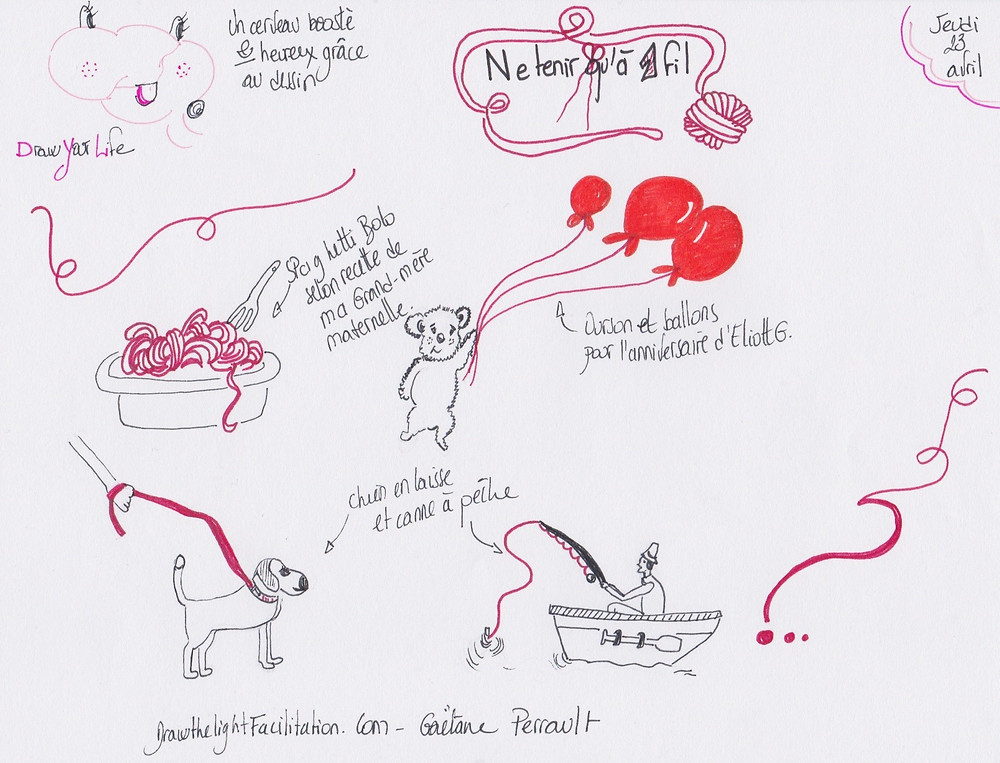 Un cerveau boosté
& heureux grâce
au dessin
Draw Your Life
Ne tenir qu'à 1 fil
Jeudi
23
avril
Spaghetti Bolo
selon recette de
ma Grand-mère
maternelle.
Ourson et ballons
pour l'anniversaire d'Eliott G.
chien en laisse
et canne à pêche
DrawthelightFacilitation.com - Gaëtane Perrault